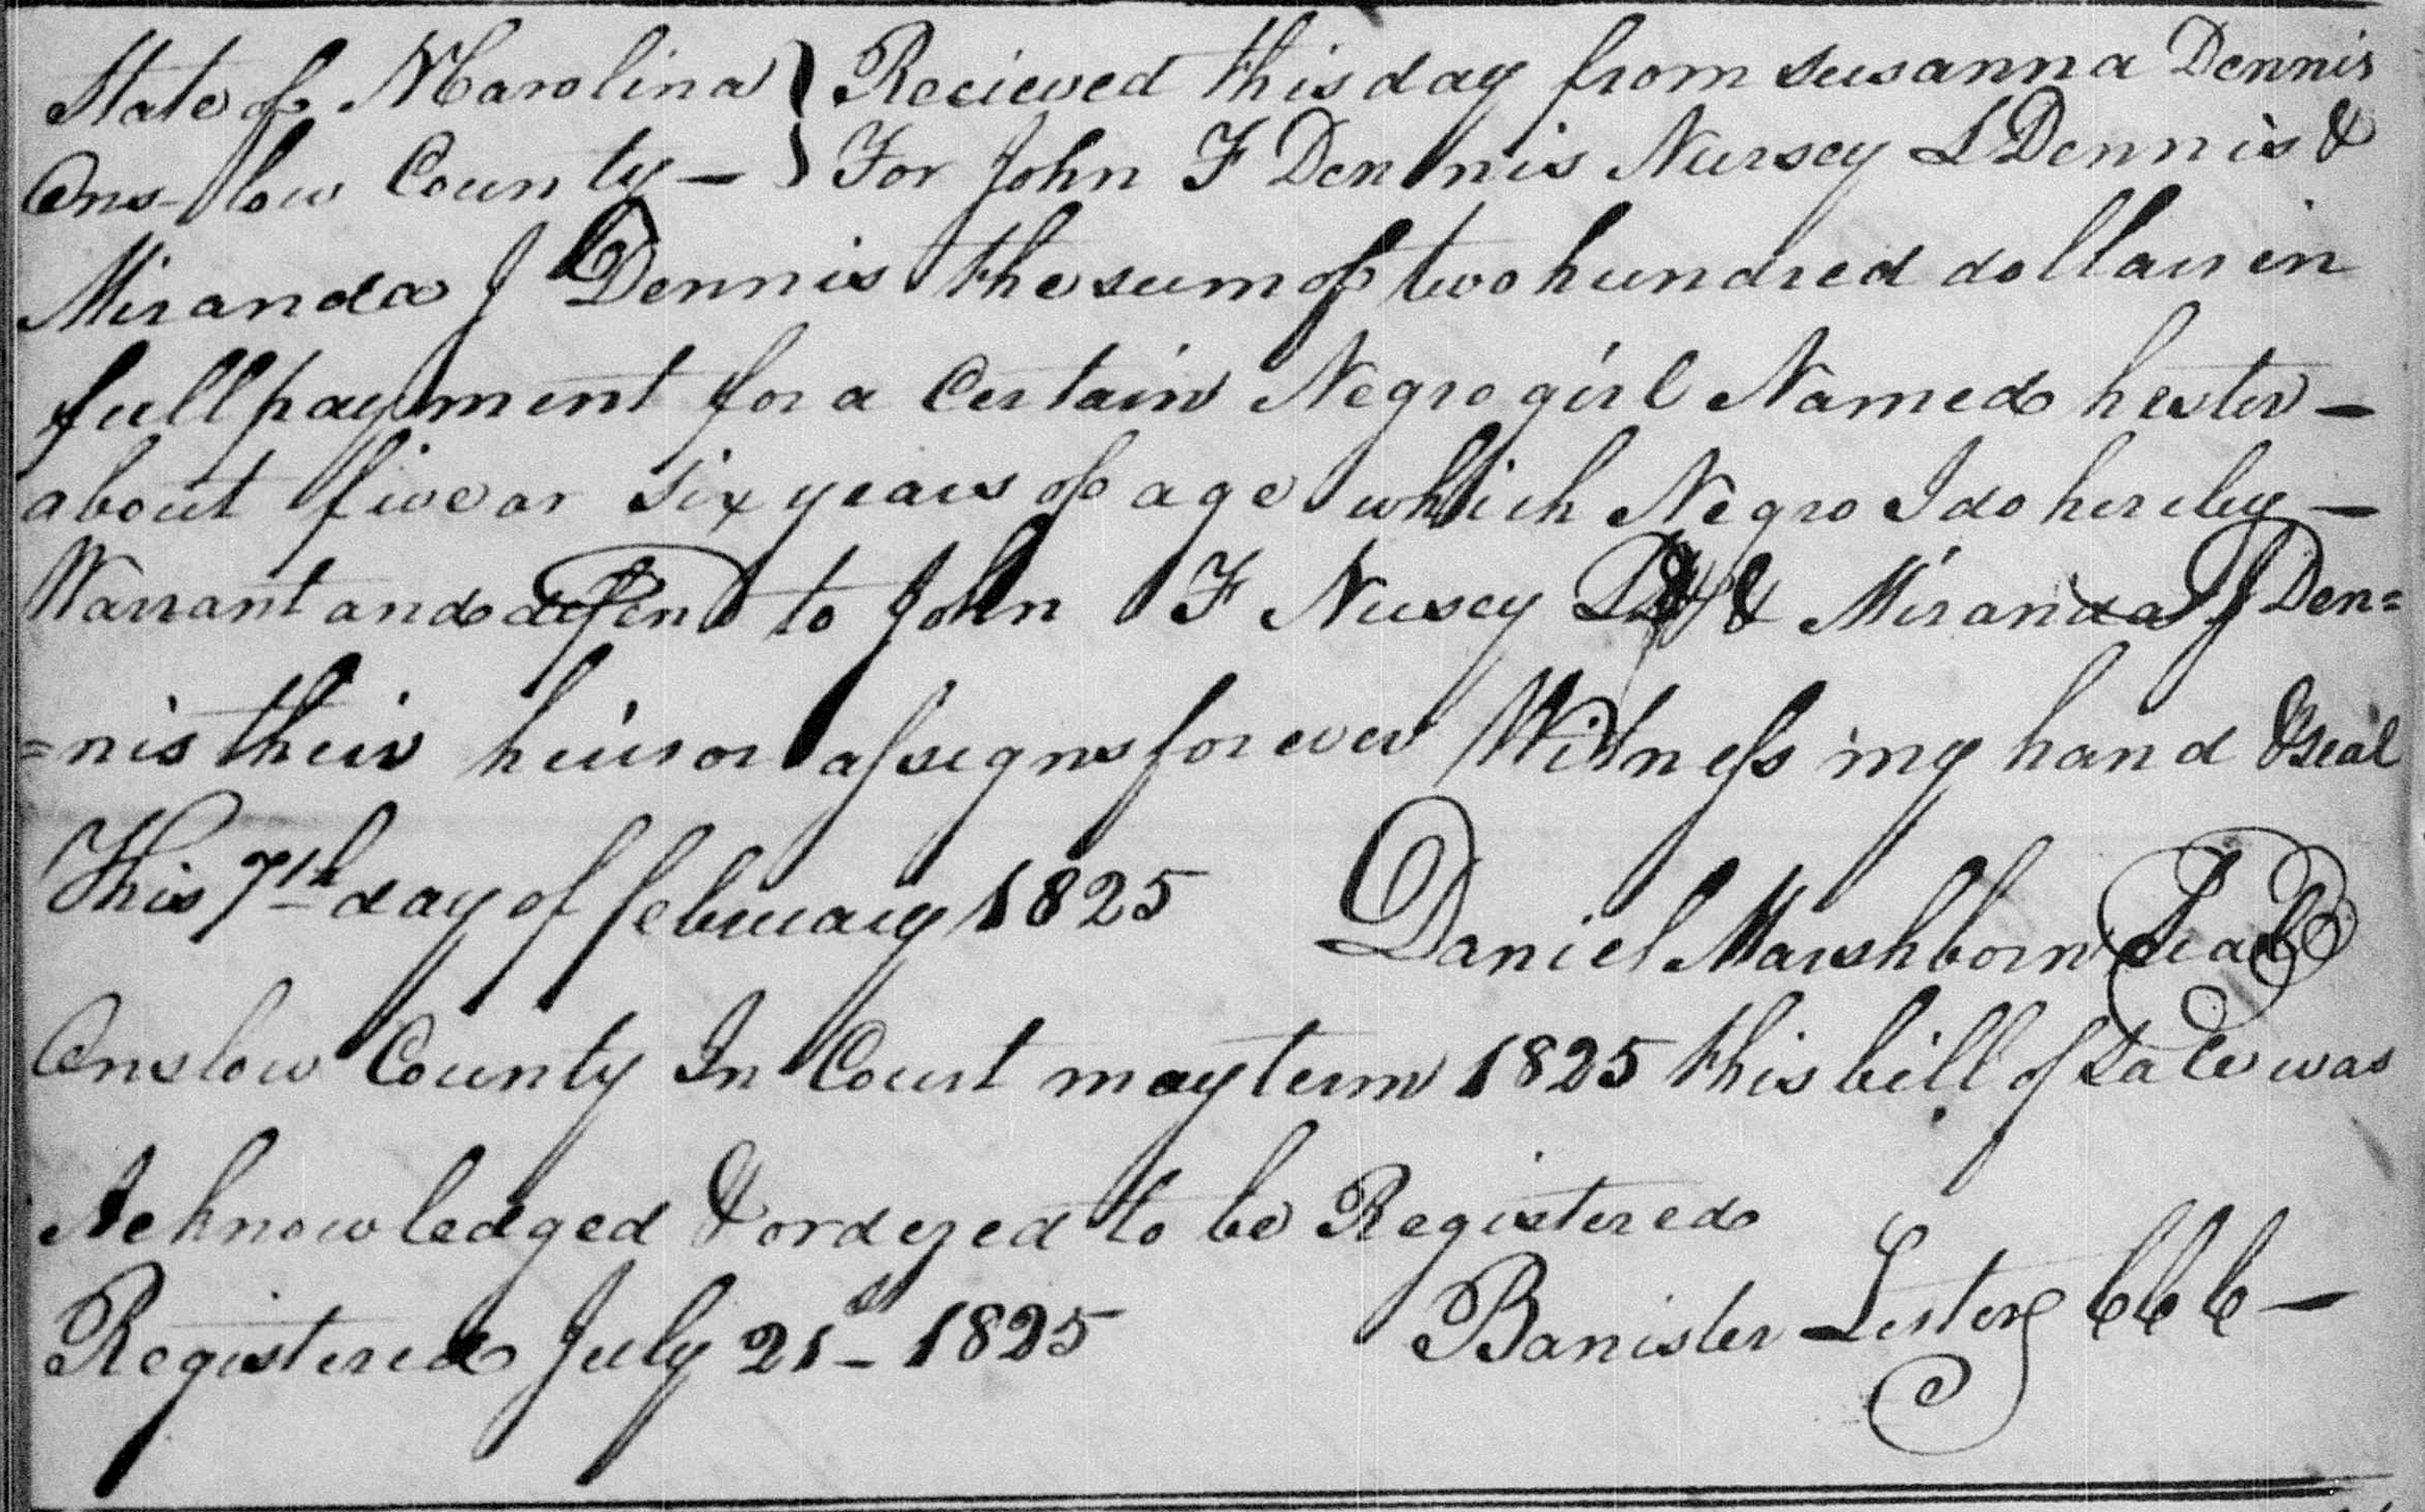 State of N Carolina } Recieved this day from susanna Dennis
Ons-low County — } For John F Dennis Nursey L Dennis &
Miranda J Dennis the sum of two hundred dollars in
full payment for a Certain Negro girl Named hester —
about five or six years of age which Negro I do hereby —
Warrant and defend to John F Nursey L & Miranda J Den=
=nis their heirs or assigns for ever Witness my hand & seal
This 7th day of february 1825 Daniel Marshborn Seal
Onslow County In Court may term 1825 this bill of Sale was
Acknowledged & ordered to be Registered
Registered July 21st - 1825 Banister Lester CCC —